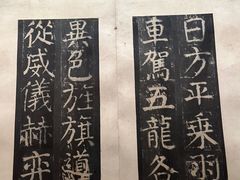 日方平乘羽
車駕五龍各
異色旌旗導
從威儀赫弈